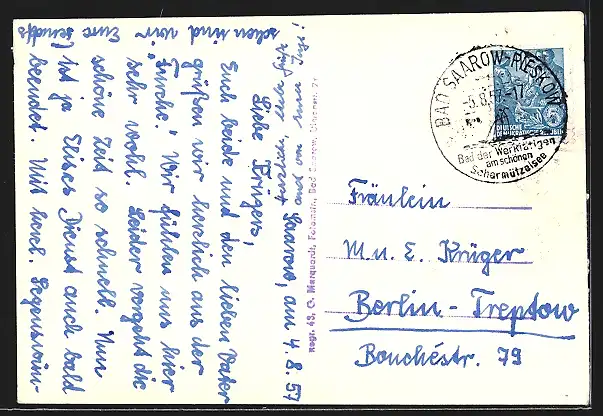 Saarow, am 4.8.57
Liebe Krügers,
Euch beide und den lieben Vater
grüßen wir herzlich aus der
"Furche". Wir fühlen uns hier
sehr wohl. Leider vergeht die
schöne Zeit so schnell. Nun
ist ja Elises Dienst auch bald
beendet. Mit herzl. Segenswün-
schen sind wir Eure
Regr. 43, G. Marquardt, Fotomstr., Bad Saarow,
BAD SAAROW-PIESKOW
-5.8.57-17
Bad der Werktätigen
am schönen
Scharmützelsee
DEUTSCHE
DEMOKRATISCHE REPUBLIK
Fräulein
M. u. E. Krüger
Berlin-Treptow
Bouchéstr. 79